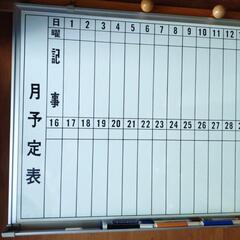 月予定表
日 1 2 3 4 5 6 7 8 9 10 11 12
曜
記
事
16 17 18 19 20 21 22 23 24 25 26 27 28